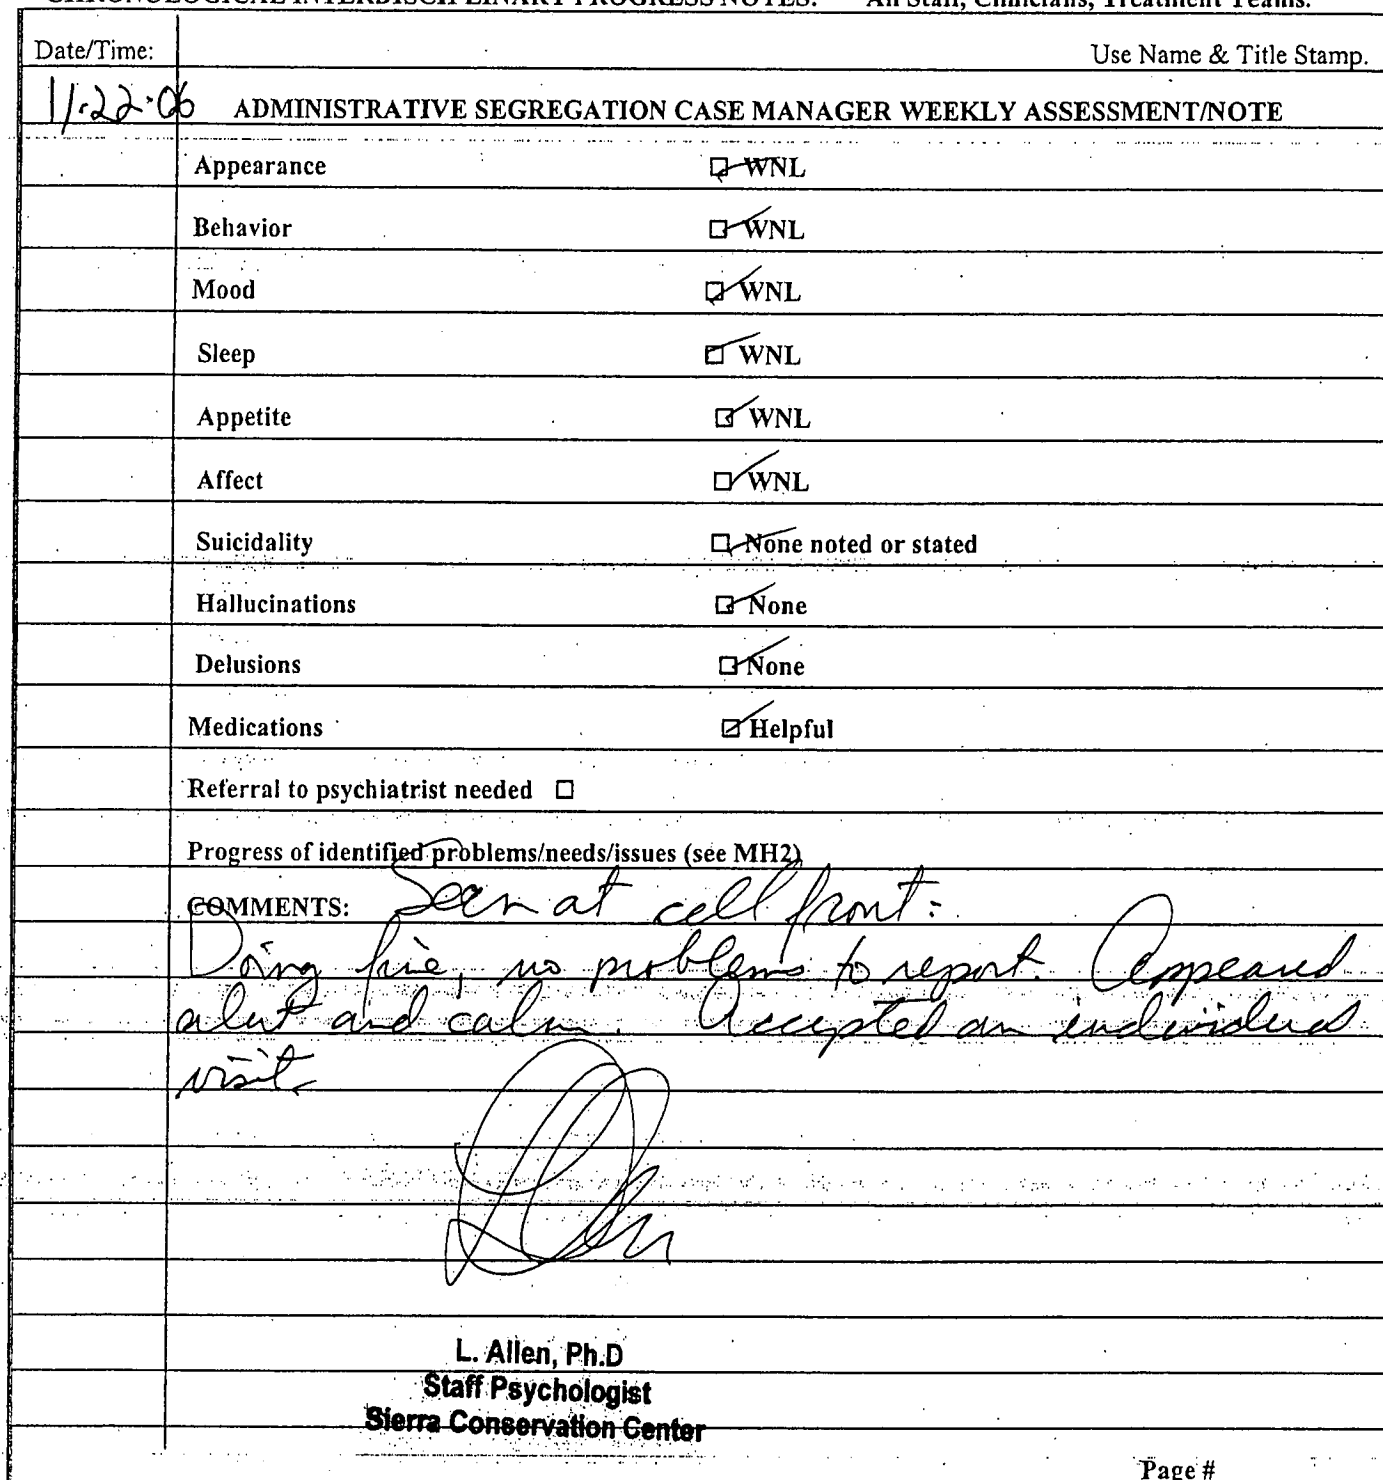 CHRONOLOGICAL INTERDISCIPLINARY PROGRESS NOTES: All Staff, Clinicians, Treatment Teams.
Date/Time: Use Name & Title Stamp.
11·22·06 ADMINISTRATIVE SEGREGATION CASE MANAGER WEEKLY ASSESSMENT/NOTE
Appearance ☑ WNL
Behavior ☑ WNL
Mood ☑ WNL
Sleep ☑ WNL
Appetite ☑ WNL
Affect ☑ WNL
Suicidality ☑ None noted or stated
Hallucinations ☑ None
Delusions ☑ None
Medications ☑ Helpful
Referral to psychiatrist needed ☐
Progress of identified problems/needs/issues (see MH2)
COMMENTS: Seen at cell front:
Doing fine, no problems to report. Appeared
alert and calm. Accepted an individual
visit.
L. Allen, Ph.D
Staff Psychologist
Sierra Conservation Center
Page #